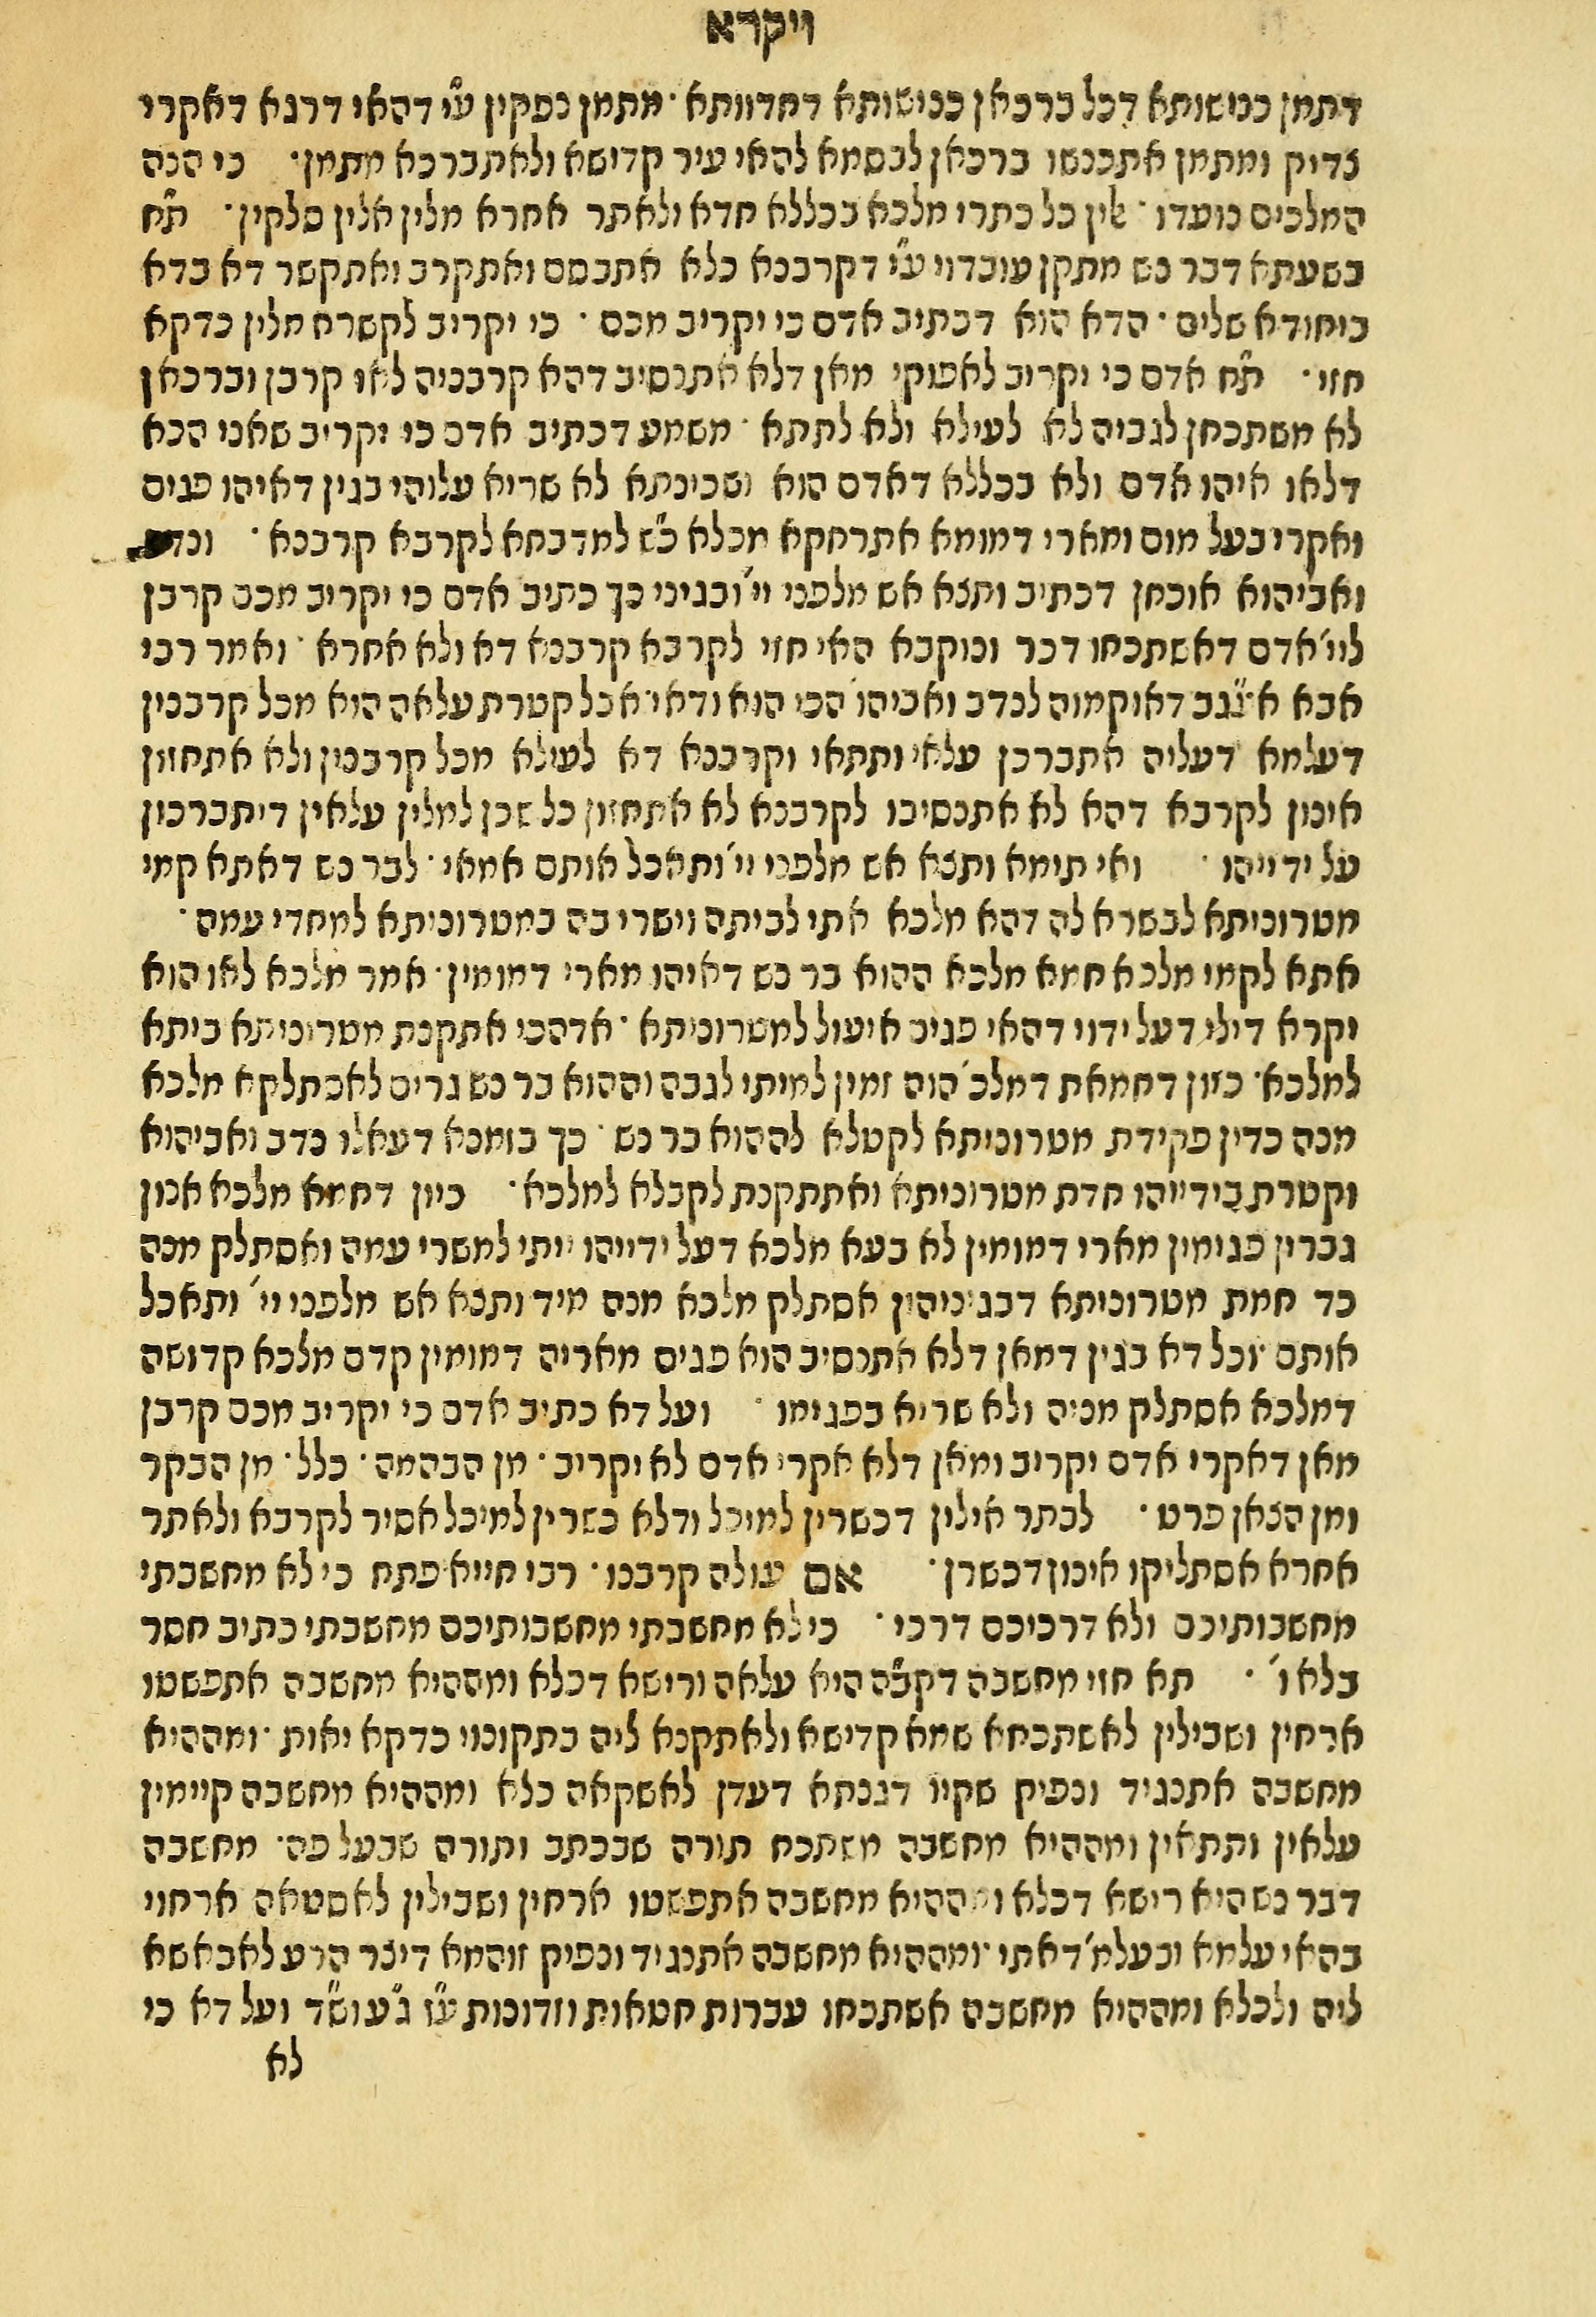 ויקרא
דתמן כנישותא דכל ברכאן כנישותא דחדוותא · מתמן נפקין ע״י דהאי דרגא דאקרי
צדיק ומתמן אתכנשו ברכאן לבסמא להאי עיר קדישא ולאתברכא מתמן · כי הנה
המלכים נועדו · אלין כל כתרי מלכא בכללא חדא ולאתר אחרא מלין אלין סלקין · ת״ח
בשעתא דבר נש מתקן עובדוי ע״י דקרבנא כלא אתבסם ואתקרב ואתקשר דא בדא
ביחודא שלים · הדא הוא דכתיב אדם כי יקריב מכם · כי יקריב לקשרא מלין כדקא
חזי · ת״ח אדם כי יקריב לאפוקי מאן דלא אתנסיב דהא קרבניה לאו קרבן וברכאן
לא משתכחן לגביה לא לעילא ולא לתתא · משמע דכתיב אדם כי יקריב שאני הכא
דלאו איהו אדם ולא בכללא דאדם הוא ושכינתא לא שריא עלוהי בגין דאיהו פגים
ואקרי בעל מום ומארי דמומא אתרחקא מכלא כ״ש למדבחא לקרבא קרבנא · ונדב
ואביהוא אוכחן דכתיב ותצא אש מלפני יי׳ ובגיני כך כתיב אדם כי יקריב מכם קרבן
ליי׳ אדם דאשתכחו דכר ונוקבא האי חזי לקרבא קרבנא דא ולא אחרא · ואמר רבי
אבא אע״ג דאוקמוה לנדב ואביהו׳ הכי הוא ודאי · אבל קטרת עלאה הוא מכל קרבנין
דעלמא דעליה אתברכן עלאי ותתאי וקרבנא דא לעילא מכל קרבנין ולא אתחזון
אינון לקרבא דהא לא אתנסיבו לקרבנא לא אתחזון כל שכן למלין עלאין דיתברכון
על ידייהו · ואי תימא ותצא אש מלפני יי׳ ותאכל אותם אמאי · לבר נש דאתא קמי
מטרוניתא לבשרא לה דהא מלכא אתי לביתה וישרי בה במטרוניתא למחדי עמה ·
אתא לקמי מלכא חמא מלכא ההוא בר נש דאיהו מארי דמומין · אמר מלכא לאו הוא
יקרא דילי דעל ידוי דהאי פגים איעול למטרוניתא · אדהכי אתקנת מטרוניתא ביתא
למלכא · כיון דחמאת דמלכ׳ הוה זמין למיתי לגבה וההוא בר נש גרים לאסתלקא מלכא
מנה כדין פקידת מטרוניתא לקטלא לההוא בר נש · כך בזמנא דעאלו נדב ואביהוא
וקטרת בידייהו חדת מטרוניתא ואתתקנת לקבלא למלכא · כיון דחמא מלכא אנון
גברין פגימין מארי דמומין לא בעא מלכא דעל ידייהו ייתי למשרי עמה ואסתלק מנה
כד חמת מטרוניתא דבגיניהון אסתלק מלכא מנה מיד ותצא אש מלפני יי׳ ותאכל
אותם · וכל דא בגין דמאן דלא אתנסיב הוא פגים מאריה דמומין קדם מלכא קדושה
דמלכא אסתלק מניה ולא שריא בפגימו · ועל דא כתיב אדם כי יקריב מכם קרבן
מאן דאקרי אדם יקריב ומאן דלא אקרי אדם לא יקריב · מן הבהמה · כלל · מן הבקר
ומן הצאן פרט · לבתר אילין דכשרין למיכל ודלא כשרין למיכל אסיר לקרבא ולאתר
אחרא אסתליקו אינון דכשרן · אם עולה קרבנו · רבי חייא פתח כי לא מחשבתי
מחשבותיכם ולא דרכיכם דרכי · כי לא מחשבתי מחשבותיכם מחשבתי כתיב חסר
בלא ו׳ · תא חזי מחשבה דקב״ה היא עלאה ורישא דכלא ומההיא מחשבה אתפשטו
ארחין ושבילין לאשתכחא שמא קדישא ולאתקנא ליה בתקונוי כדקא יאות · ומההיא
מחשבה אתנגיד ונפיק שקיו דגנתא דעדן לאשקאה כלא ומההיא מחשבה קיימין
עלאין ותתאין ומההיא מחשבה משתכח תורה שבכתב ותורה שבעל פה · מחשבה
דבר נש היא רישא דכלא ומההיא מחשבה אתפשטו ארחין ושבילין לאסטאה ארחוי
בהאי עלמא ובעלמ׳ דאתי · ומההיא מחשבה אתנגיד ונפיק זוהמא דיצר הרע לאבאשא
ליה ולכלא ומההיא מחשבה אשתכחו עברות חטאות וזדונות ע״ז ג״ע וש״ד ועל דא כי
לא